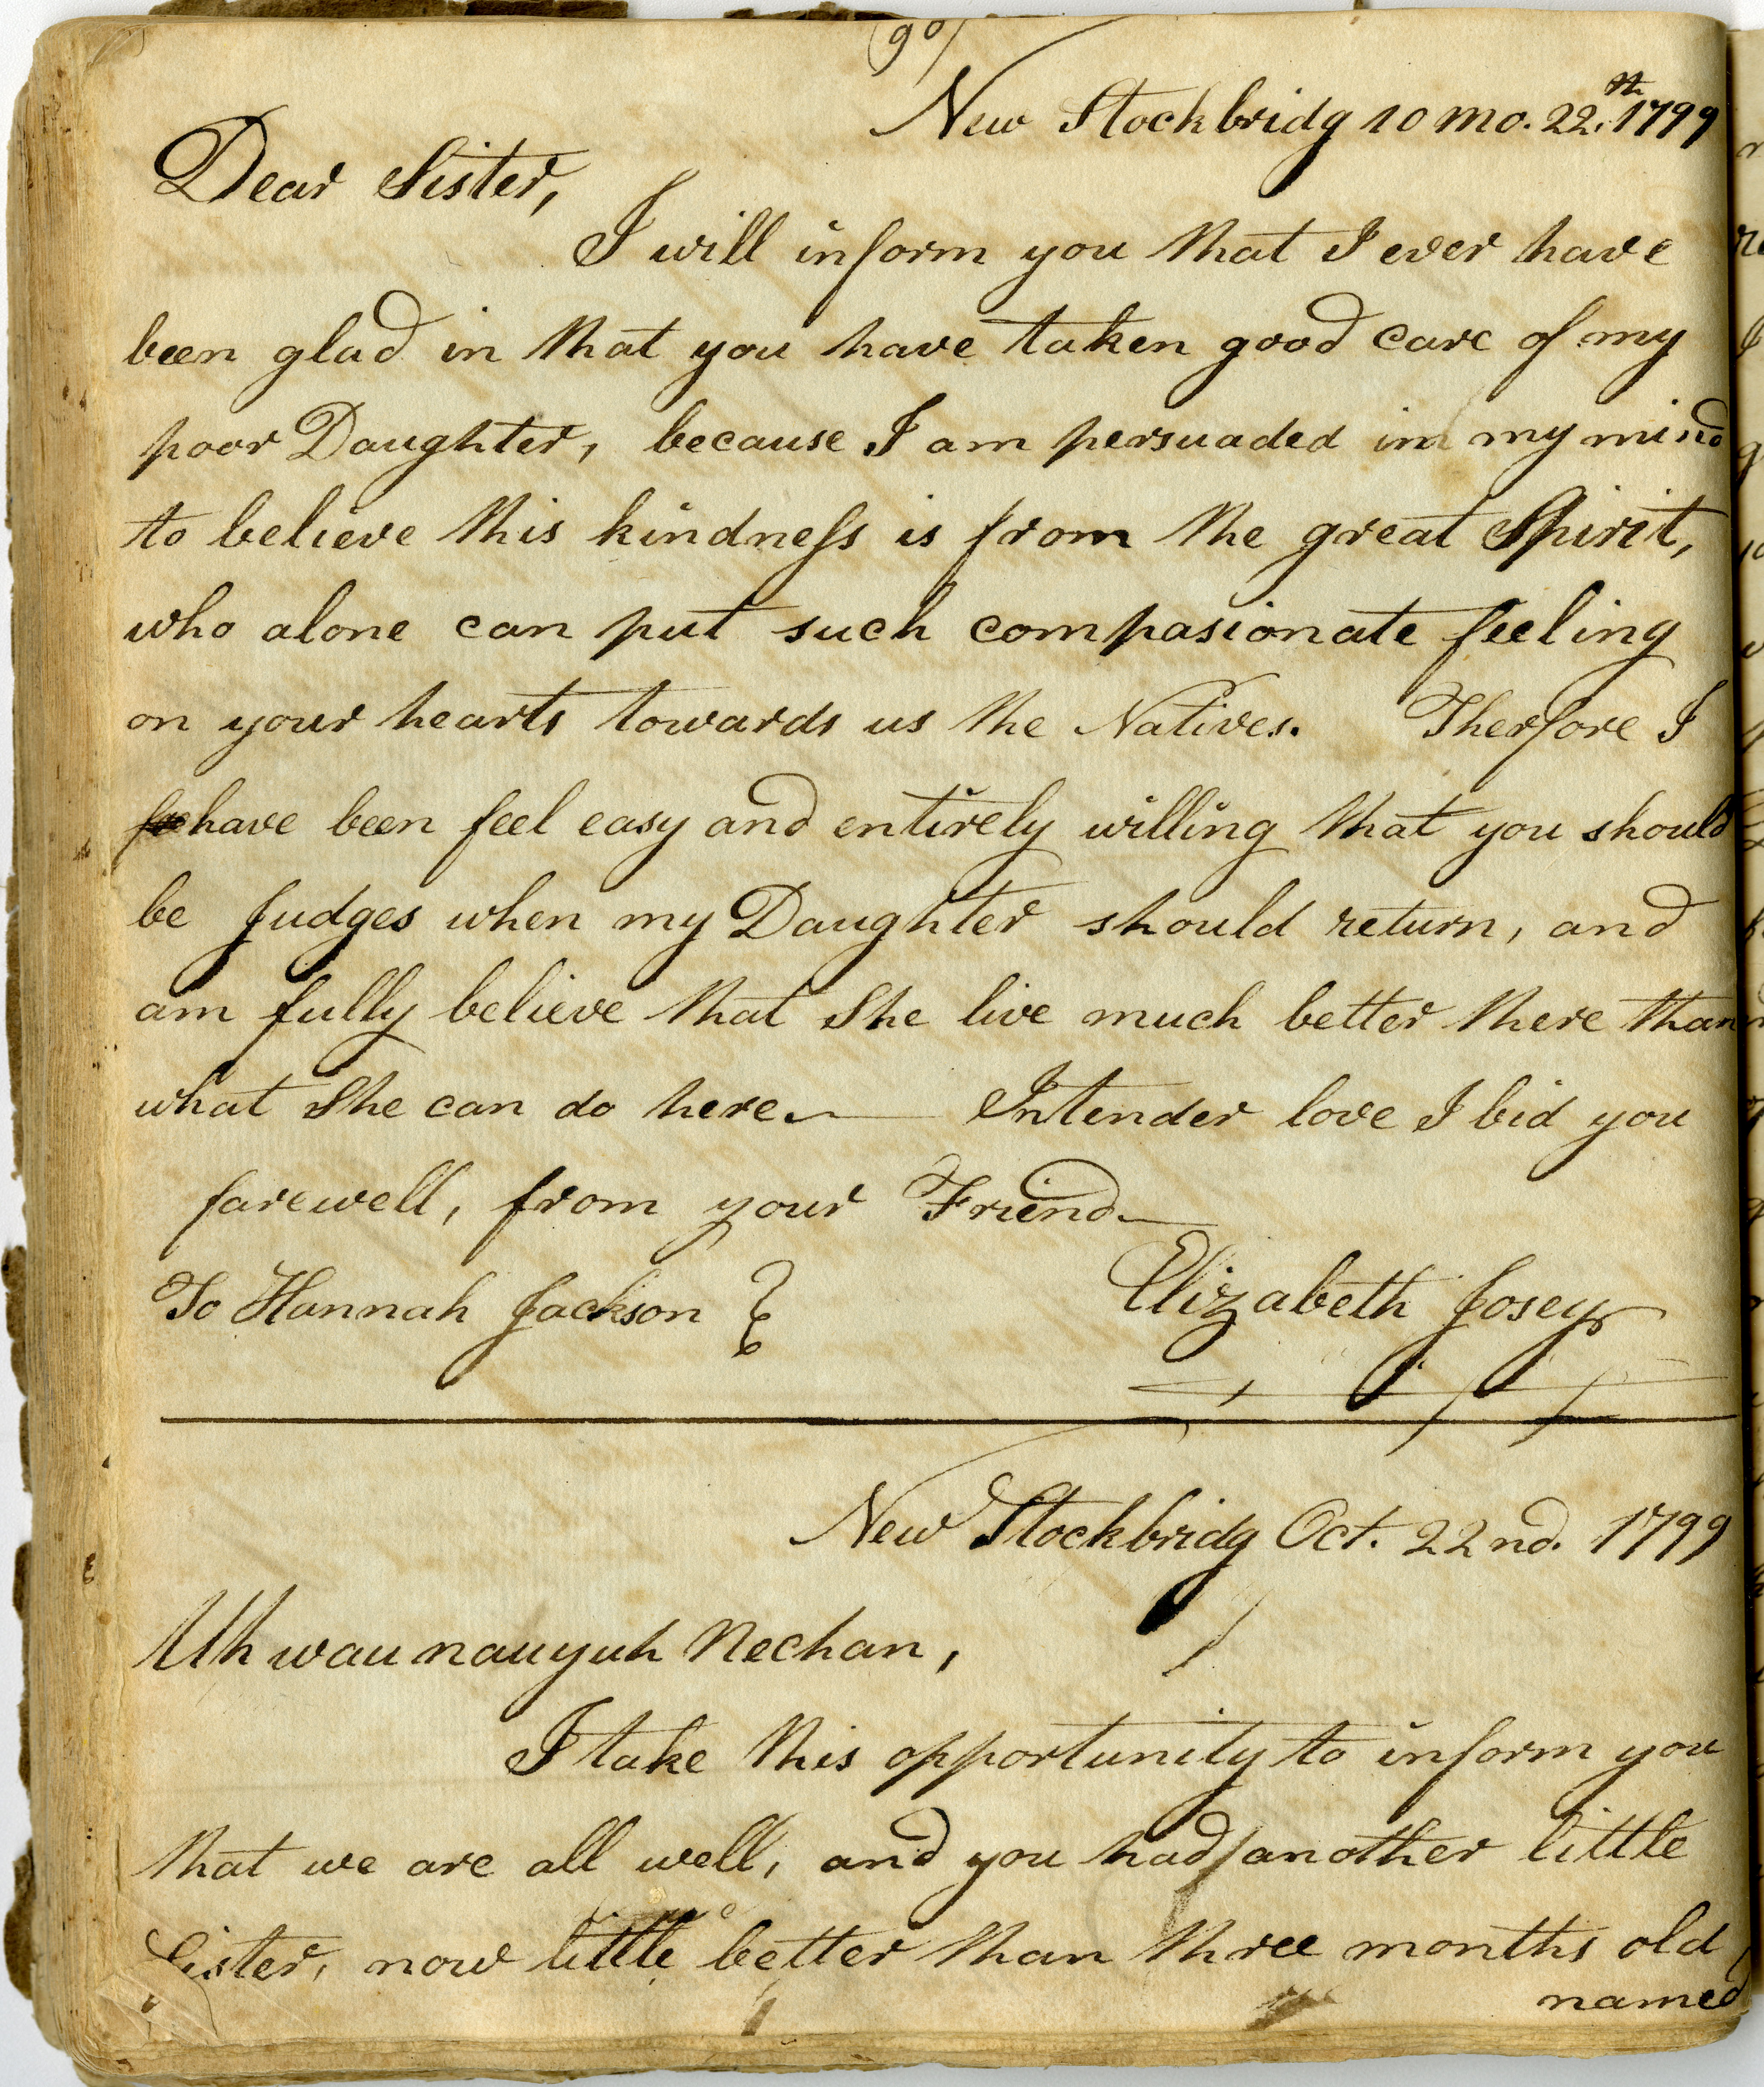 (90)
New Stockbridg 10 mo. 22.th 1799
Dear Sister,
I will inform you that I ever have
been glad in that you have taken good care of my
poor Daughter, because I am persuaded in my mind
to believe this kindness is from the great Spirit,
who alone can put such compasionate feeling
on your hearts towards us the Natives. Therfore I
have been feel easy and entirely willing that you should
be Judges when my Daughter should return, and
am fully believe that She live much better there than
what She can do here. Intender love I bid you
farewell, from your Friend
To Hannah Jackson }
Elizabeth Josey
New Stockbridg Oct. 22nd. 1799
Uhwaunauyuh Nechan,
I take this opportunity to inform you
that we are all well, and you had another little
Sister, now little better than three months old
named